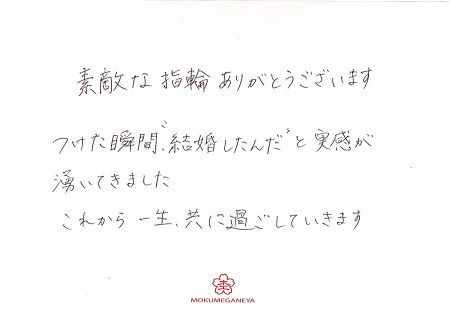 素敵な指輪ありがとうございます
つけた瞬間、〝結婚したんだ〟と実感が
湧いてきました
これから一生、共に過ごしていきます
MOKUMEGANEYA